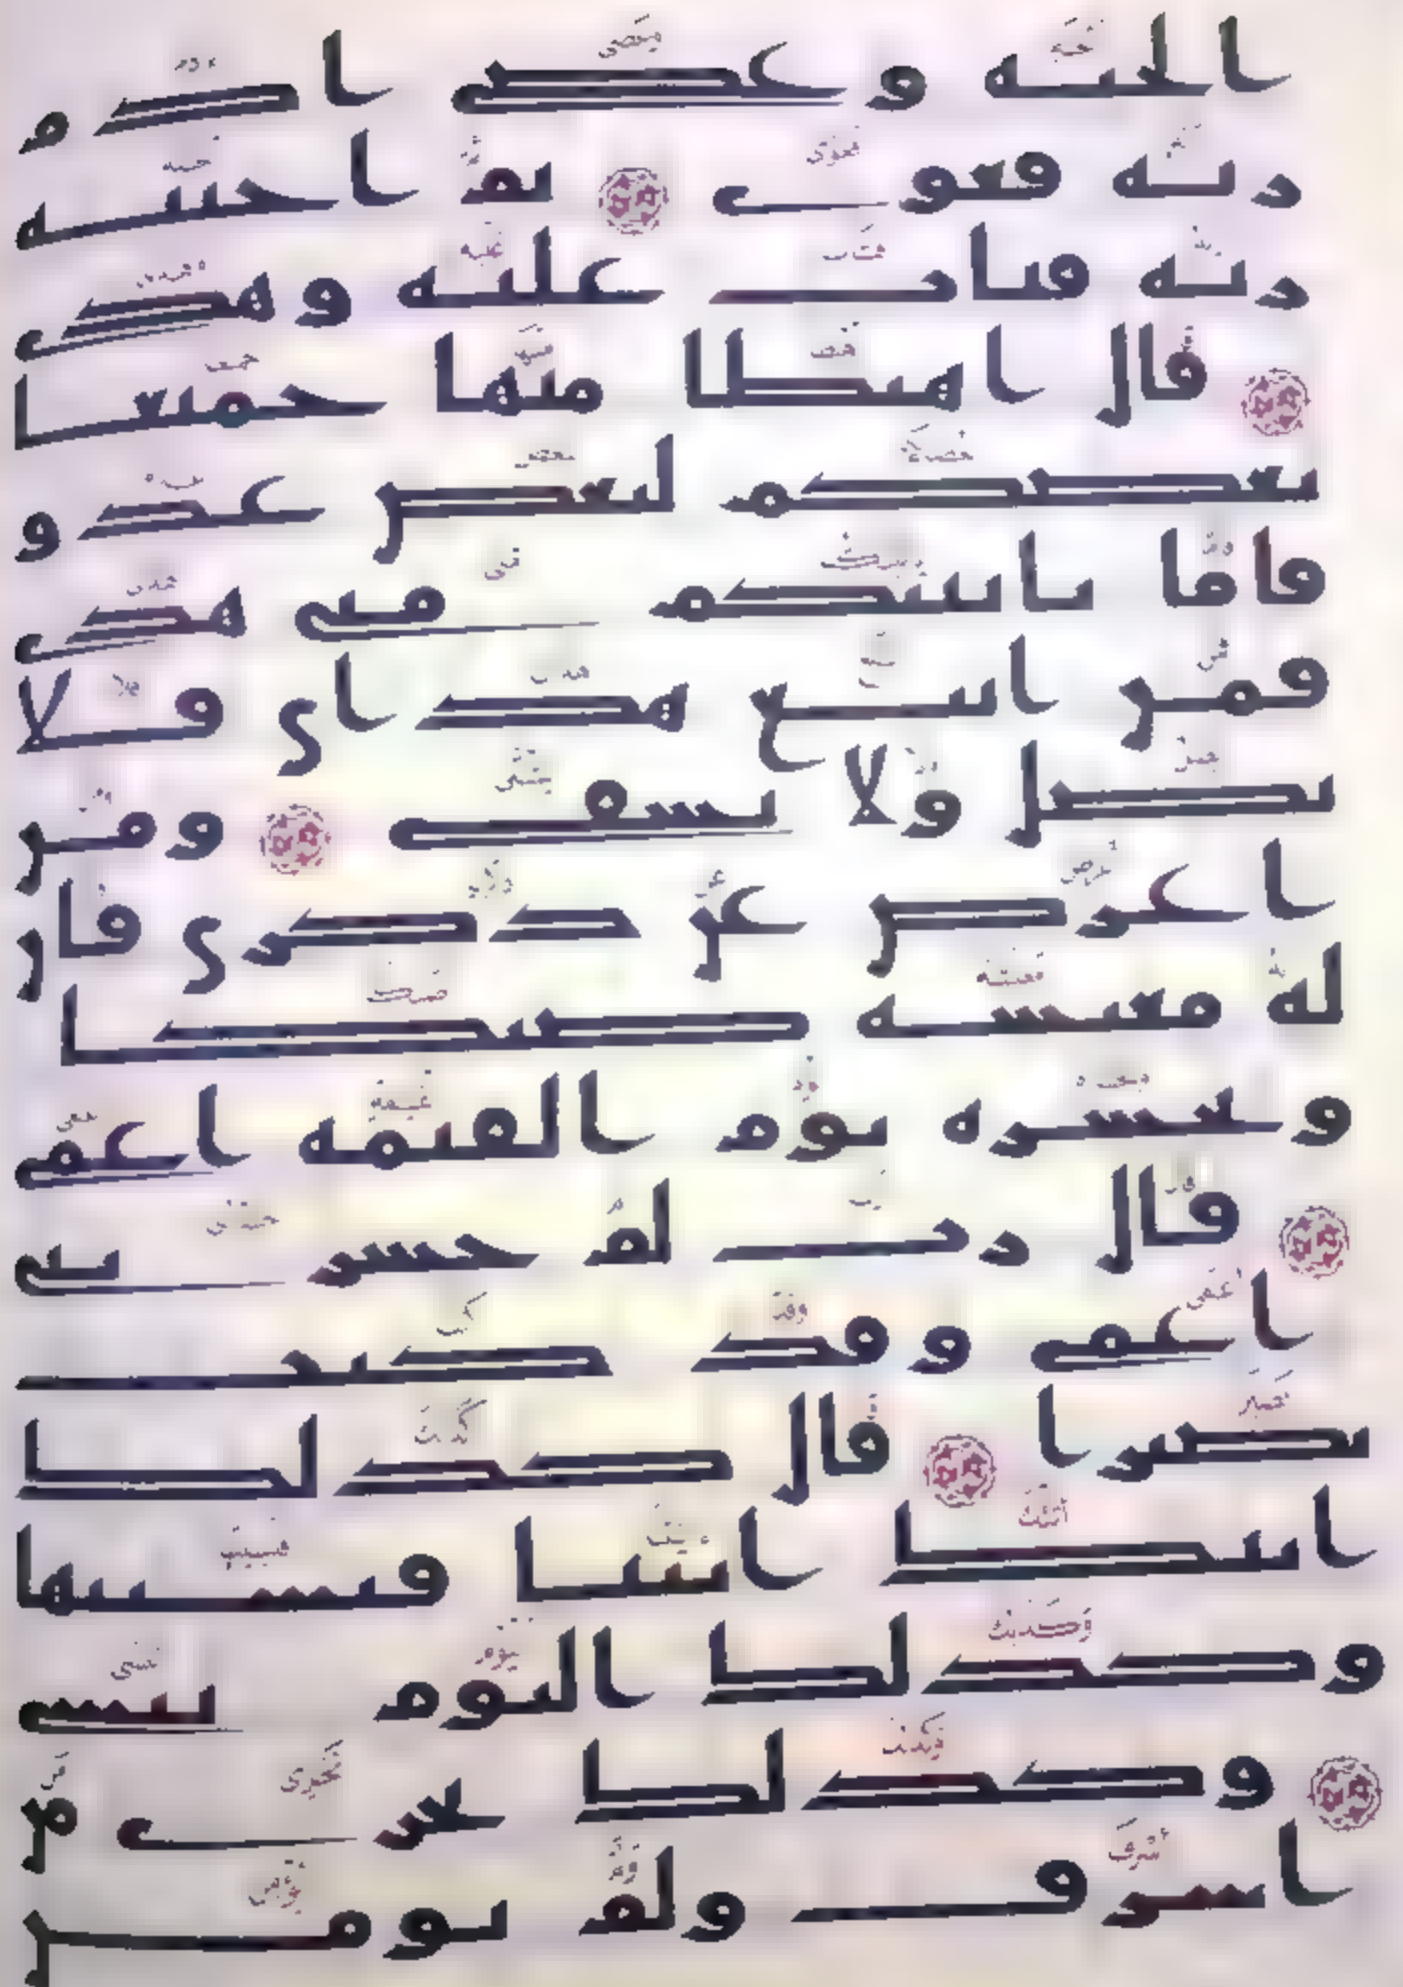 الجنه وعصى ادم
ربه فغوى ثم اجتبه
ربه فتاب عليه وهدى
قال اهبطا منها جميعا
بعضكم لبعض عدو
فاما ياتينكم منى هدى
فمن اتبع هداى فلا
يضل ولا يشقى ومن
اعرض عن ذكرى فان
له معيشه ضنكا
ونحشره يوم القيمه اعمى
قال رب لم حشرتنى
اعمى وقد كنت
بصيرا قال كذلك
اتتك ايتنا فنسيتها
وكذلك اليوم تنسى
وكذلك نجزى من
اسرف ولم يومن